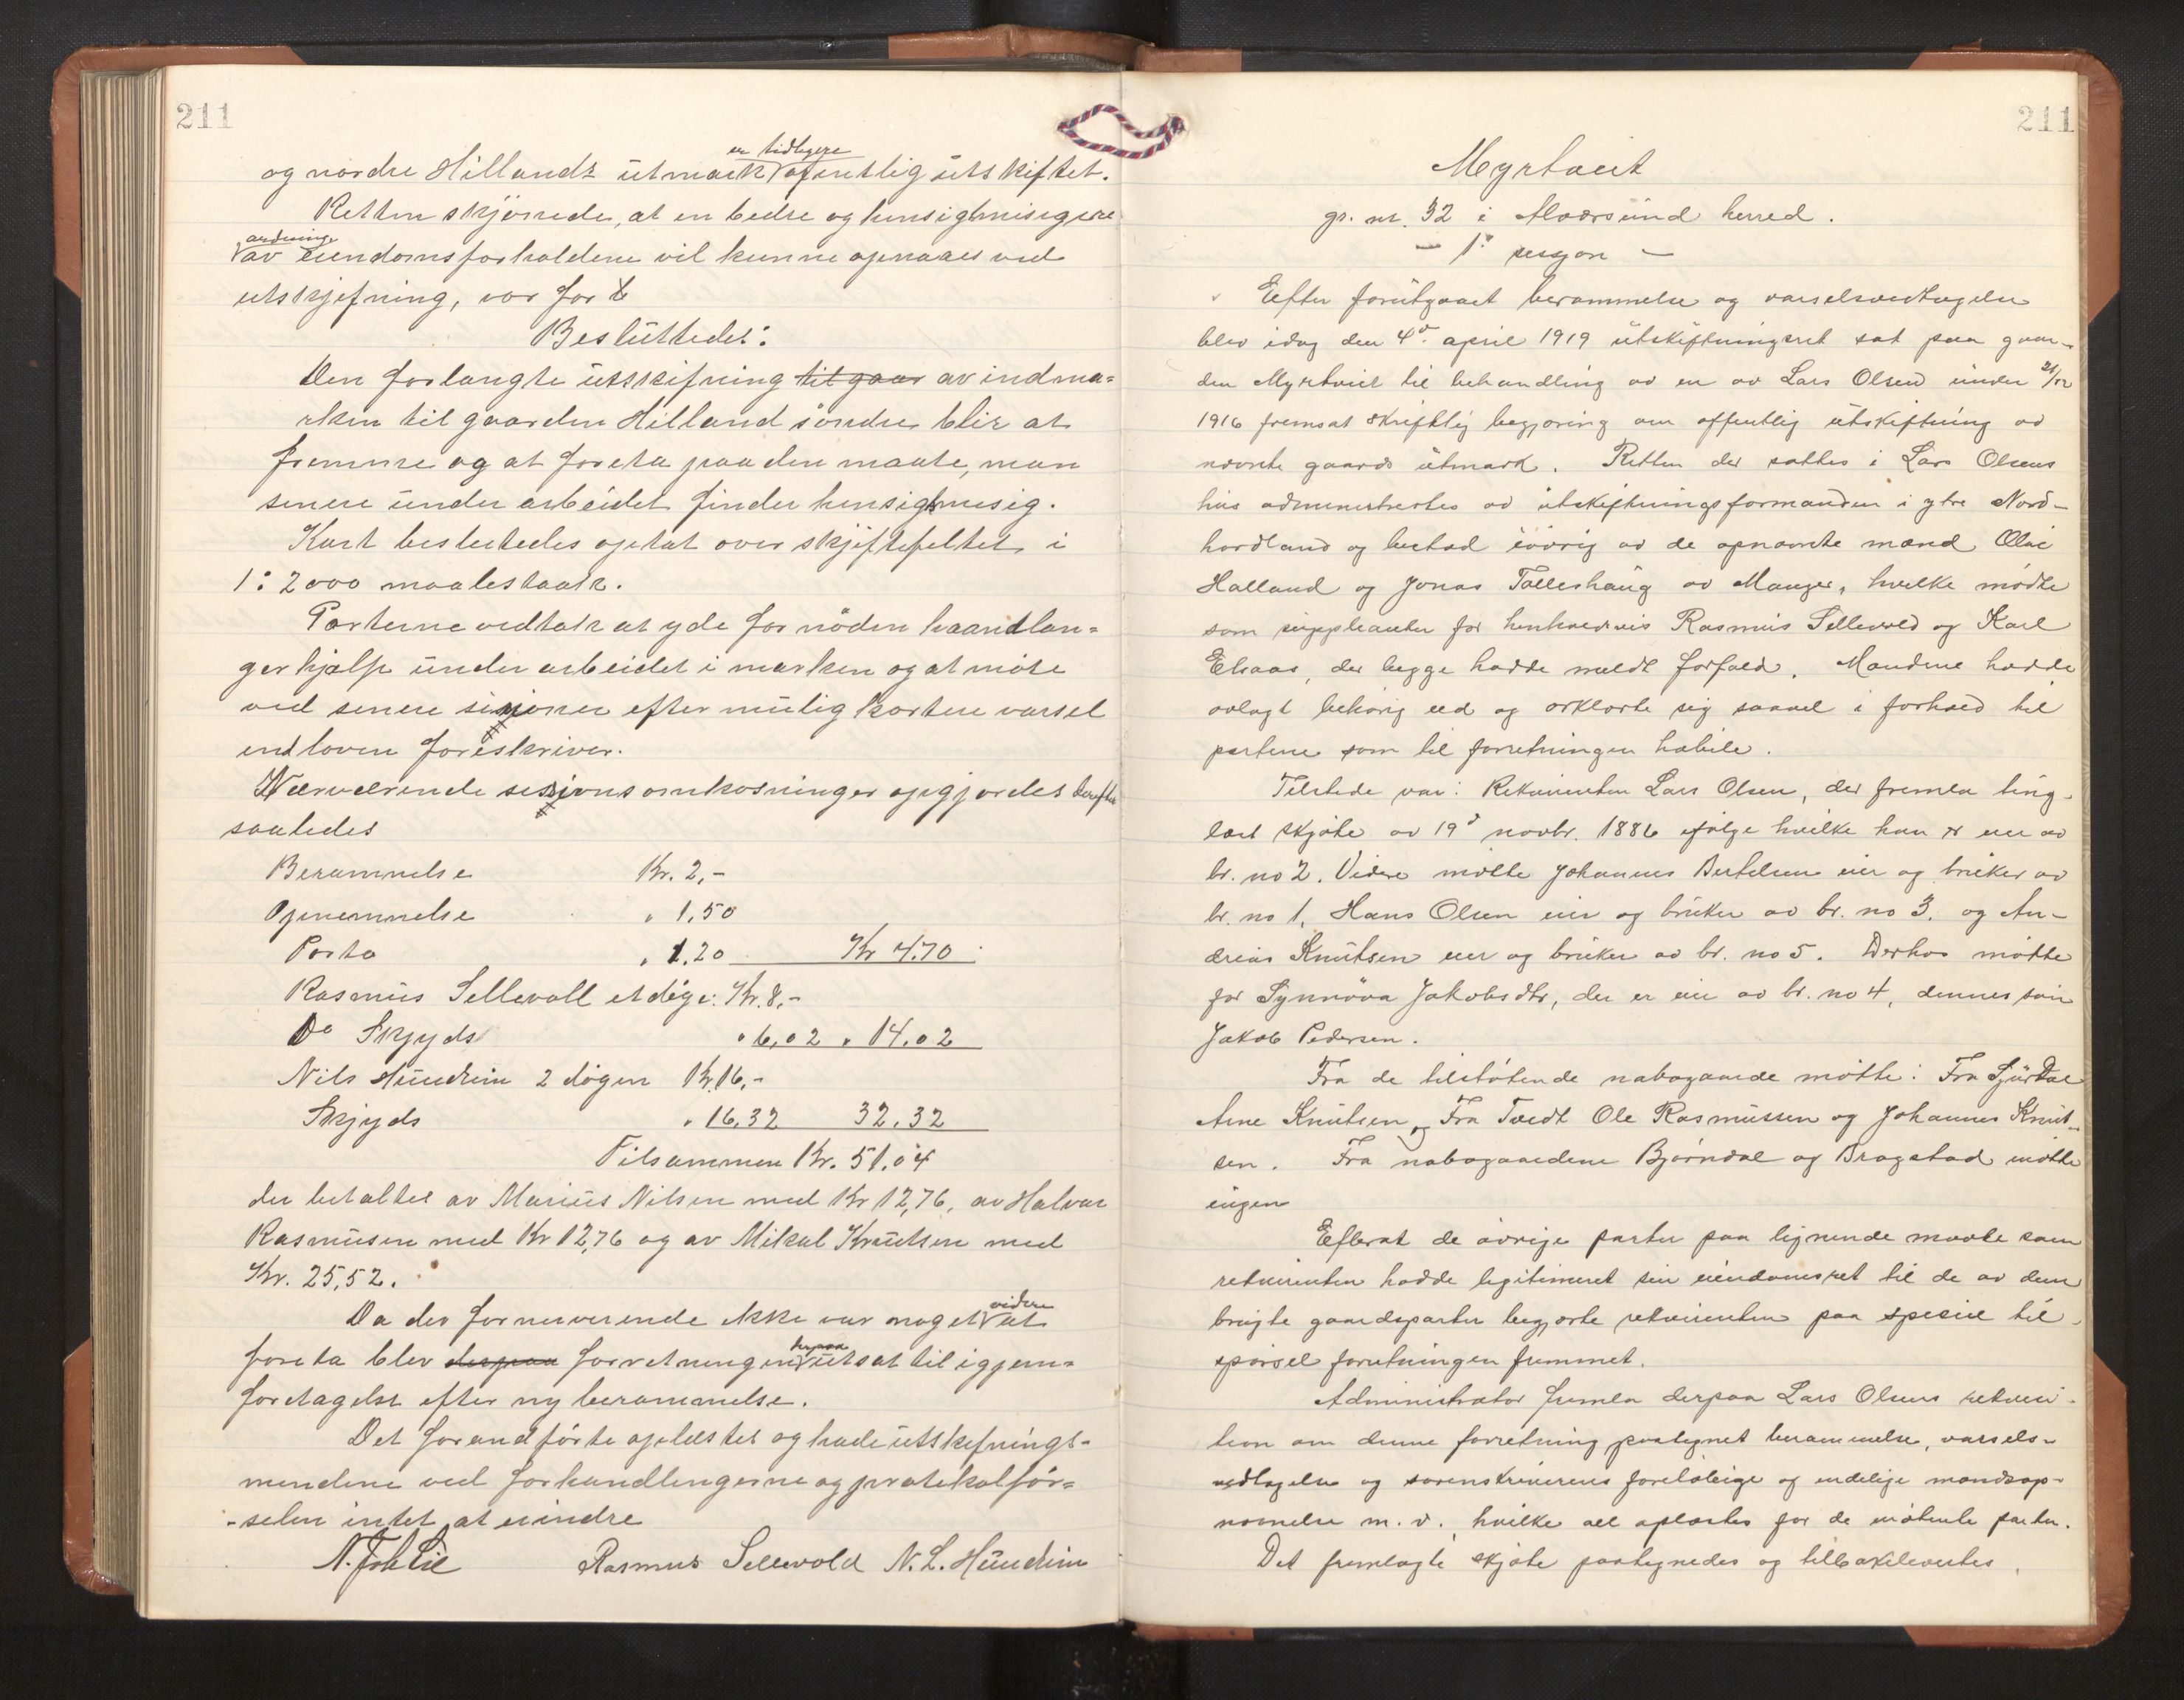 211
og nordre Hillands utmark er tidligere ofentlig utskiftet.
Retten skjönnede, at en bedre og hensigtmesigere
ordning av eiendomsforholdene vil kunne opnaaes ved
utskjefning, vor for b
Besluttedes:
Den forlangte utskifning til gaar av indma-
rken til gaarden Hilland söndre blir at
fremme og at foreta paa den maate, man
senere under arbeidet finder hensigtmesig.
Kart besluttedes optat over skjiftefeltet i
1:2000 maalestaak.
Parterne vedtok at yde for nöden haandlan-
ger hjælp under arbeidet i marken og at möte
ved senere sesjoner efter mulig kortere varsel
end loven foreskriver.
Nærværende sesjons omkosninger opgjordes derefter
saaledes
Berammelse Kr. 2,-
Opnemnelse " 1,50
Porto " 1.20 Kr 4.70
Rasmus Sellevoll et dögn: Kr. 8,-
Do Skjyds " 6,02 " 14.02
Nils Hundvin 2 dögen Kr 16,-
Skjyds " 16,32 32,32
Tilsammen Kr. 51.04
der betaltes av Marius Nilsen med Kr 12,76, av Halvar
Rasmusen med Kr 12,76 og av Mikal Knutsen med
Kr. 25,52.
Da der for nerverende ikke var noget videre at
foreta blev derpaa forretningen herpaa utsat til igjem-
foretagelse efter ny berammelse.
Det forandförte oplestes og hade utskifnings-
mendene ved forhandlingerne og protokolför-
-selen intet at erindre
N. Joh Lie Rasmus Sellevold N. L. Hundvin
211
Myrtveit
gr. nr. 32 i Alversund herred.
- 1. sesjon -
Eefter forutgaaet berammelse og varselsvedtagelse
blev idag den 4de april 1919 utskiftningsret sat paa gaar-
den Myrtveit til behandling av en av Lars Olsen under 21/12
1916 fremsat skriftlig begjæring om offentlig utskiftning av
nævnte gaards utmark. Retten der sattes i Lars Olsens
hus administrertes av utskiftningsformanden i ytre Nord-
hordland og bestod iövrig av de opnævnte mænd Olai
Halland og Jonas Tolleshaug av Manger, hvilke mödte
som suppleanter for henholdsvis Rasmus Sellevold og Karl
Elsaas, der begge hadde meldt forfald. Mændene hadde
avlagt behörig ed og erklærte sig saavel i forhold til
partene som til forretningen habile.
Tilstede var: Rekvirenten Lars Olsen, der fremla ting-
læst skjöte av 19de novbr. 1886 ifölge hvilke han er eier av
br. no 2. Videre mötte Johannes Bertelsen eier og bruker av
br. no 1, Hans Olsen eier og bruker av br. no 3. og An-
dreas Knutsen eier og bruker av br. no 5. Derhos mötte
for Synnöva Jakobsdtr, der er eier av br. no 4, dennes sön
Jakob Pedersen.
Fra de tilstötende nabogaarde mötte: Fra Fjurdal
Arne Knutsen, Fra Tvedt Ole Rasmussen og Johannes Knut-
sen. Fra nabogaardene Björndal og Bragstad mötte
ingen
Efterat de övrige parter paa lignende maate som
rekvirenten hadde legitimeret sin eiendomsret til de av dem
brugte gaardsparter begjærte rekvirenten paa speciel til-
spörsel forretningen fremmet.
Administrator fremla derpaa Lars Olsens rekvisi-
tion om denne forretning paategnet berammelse, varsels-
vedtagelse og sorenskriverens forelöbige og endelige mandsop-
nævnelse m. v. hvilke alt oplæstes for de mötende parter.
Det fremlagte skjöte paategnedes og tilbakelevertes.